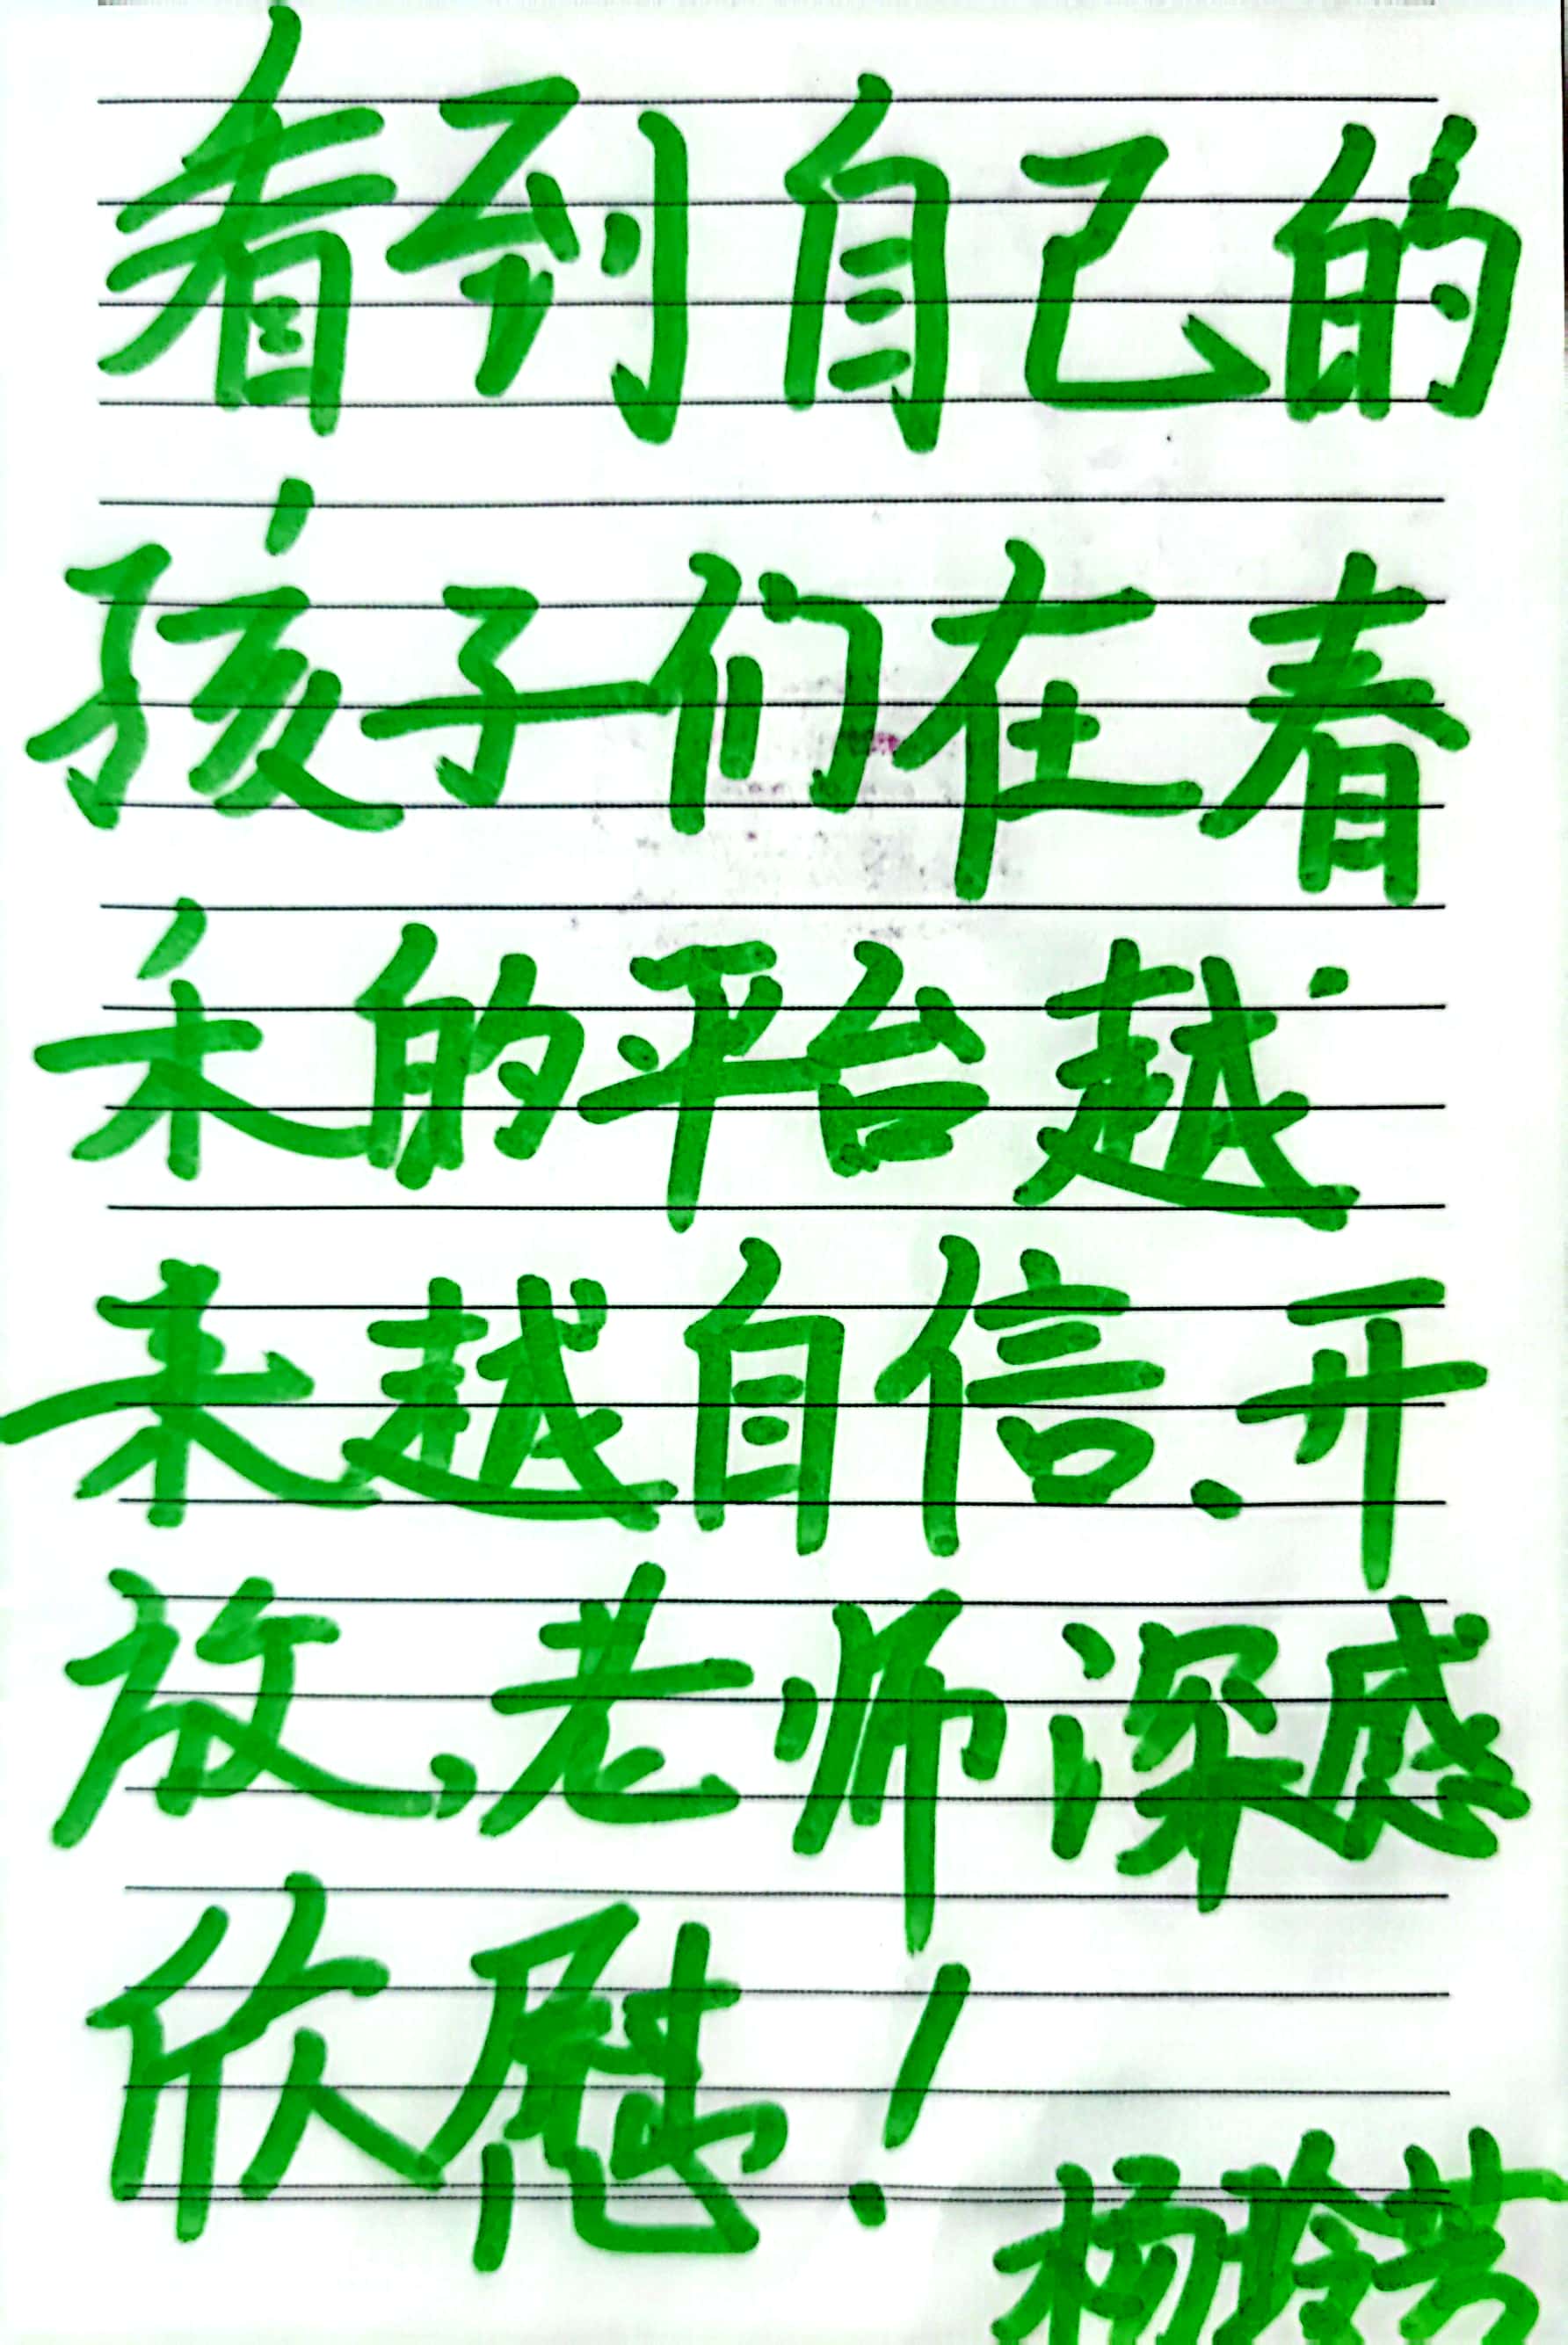 看到自己的
孩子们在春
禾的平台越
来越自信、开
放、老师深感
欣慰！
杨